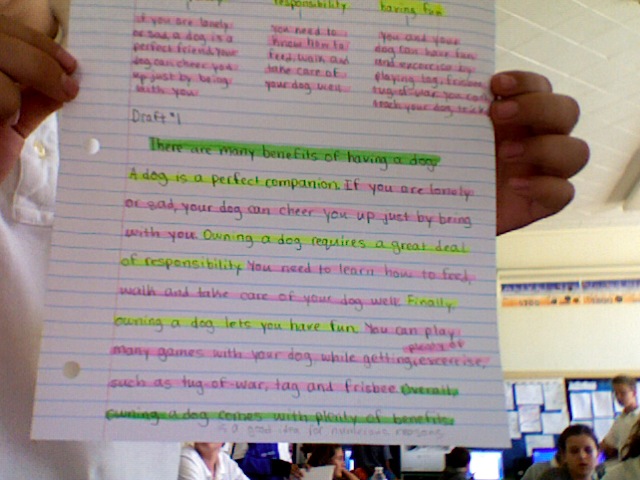 responsibility
having fun
if you are lonely
or sad a dog is a
perfect friend. your
dog can cheer you
up just by being
with you
You need to
know how to
feed, walk and
take care of
your dog well
You and your
dog can have fun
and excercise by
playing tag, frisbee
tug-of-war. You can
teach your dog tricks
Draft #1
There are many benefits of having a dog.
A dog is a perfect companion. If you are lonely
or sad, your dog can cheer you up just by being
with you. Owning a dog requires a great deal
of responsibility. You need to learn how to feed,
walk and take care of your dog well. Finally,
owning a dog lets you have fun. You can play
plenty of
many games with your dog while getting excercise,
such as tug-of-war, tag and frisbee. Overall,
owning a dog comes with plenty of benefits.
is a good idea for numerous reasons